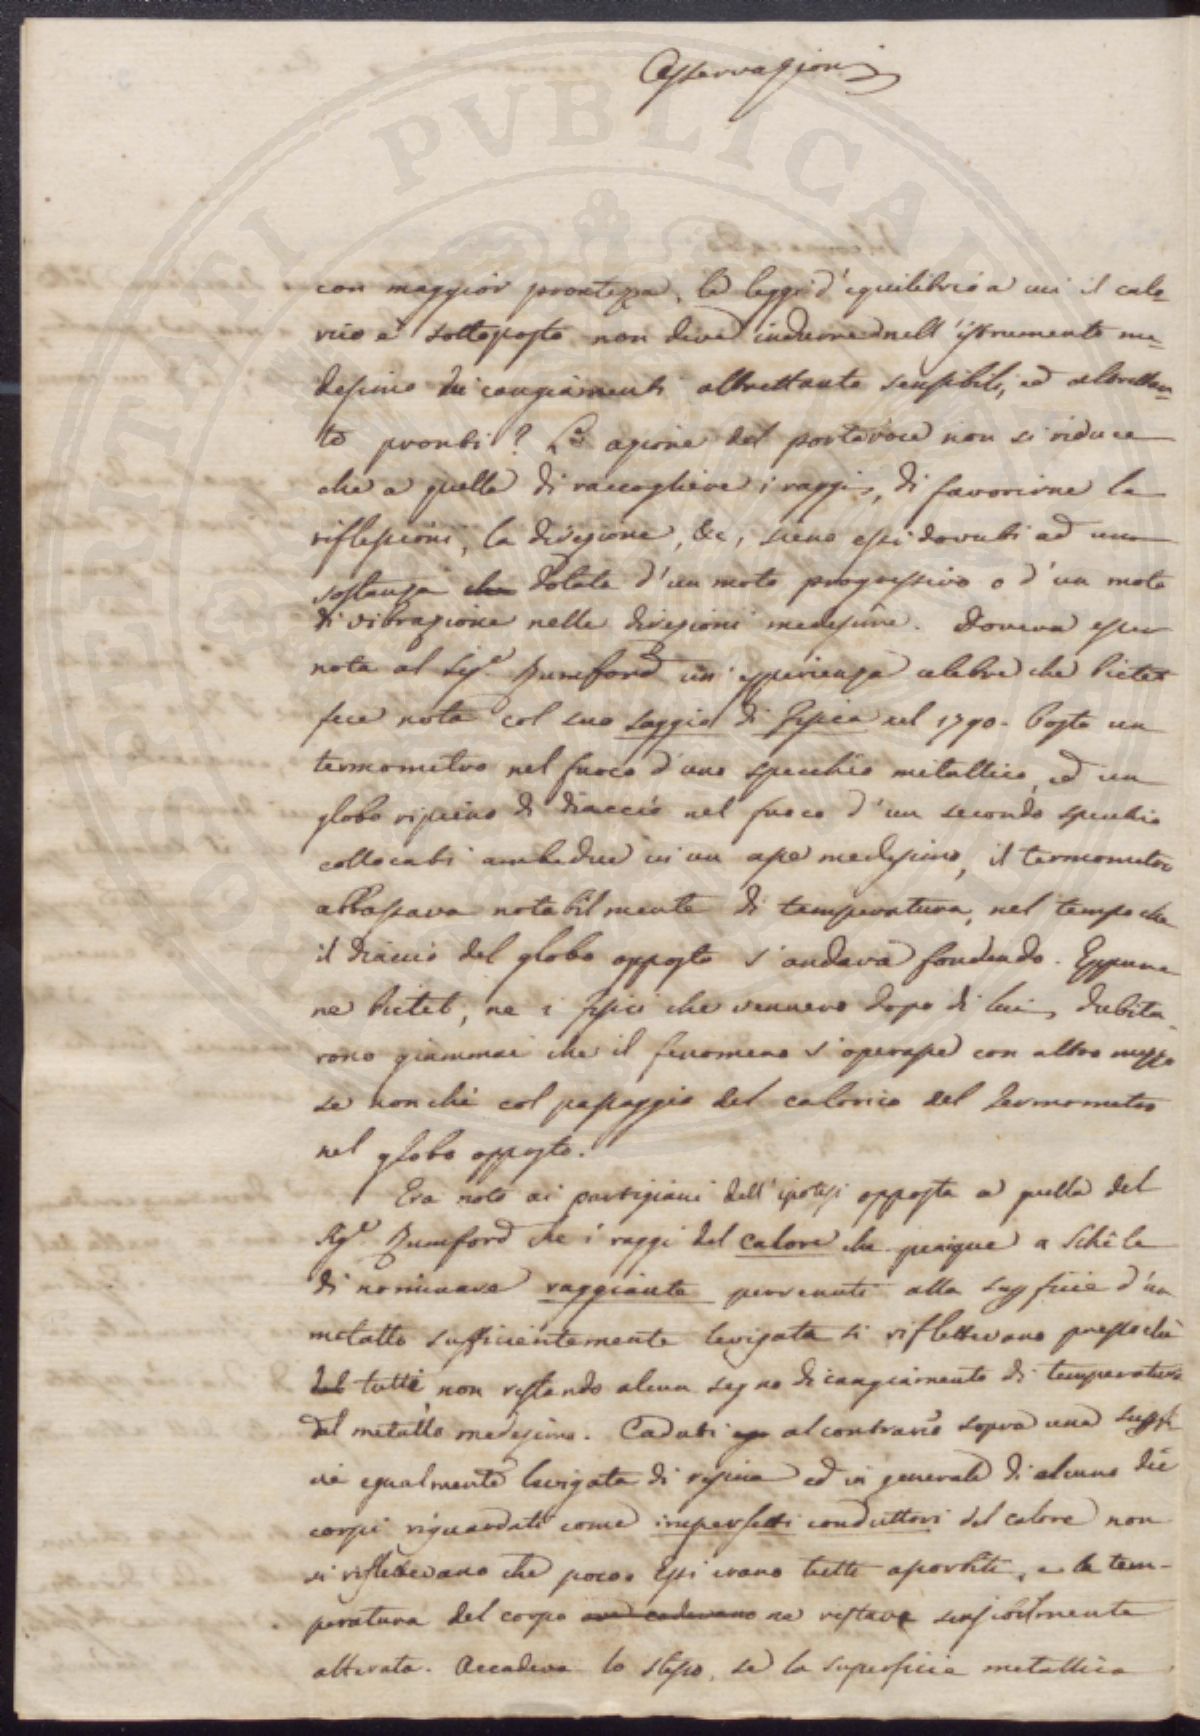 Osservazioni
con maggior prontezza, le leggi d'equilibrio a cui il calo-
rico è sottoposto non deve indurre nell'istrumento me-
desimo de' cangiamenti altrettanto sensibili, ed altrettan-
to pronti? L'azione del portavoce non si riduce
che a quella di raccogliere i raggi, di favorirne le
riflessioni, la direzione, &c, sieno essi dovuti ad una
sostanza che dotata d'un moto progressivo o d'un moto
di vibrazione nelle direzioni medesime. Doveva esser
nota al Sig.r Rumford un'esperienza celebre che Pictet
fece nota col suo saggio di Fisica nel 1790. Posto un
termometro nel fuoco d'uno specchio metallico, ed un
globo ripieno di diaccio nel fuoco d'un secondo specchio
collocati ambedue in un asse medesimo, il termometro
abbassava notabilmente di temperatura, nel tempo che
il diaccio del globo opposto s'andava fondendo. Eppure
ne Pictet, ne i fisici che vennero dopo di lui, dubita-
rono giammai che il fenomeno s'operasse con altro mezzo
se non che col passaggio del calorico del termometro
nel globo opposto.
Era noto ai partigiani dell'ipotesi opposta a quella del
Sig.r Rumford che i raggi del calore che piacque a Schêle
di nominare raggiante pervenuti alla superficie d'un
metallo sufficientemente levigata si riflettevano pressoché
del tutto, non restando alcun segno di cangiamento di temperatura
del metallo medesimo. Caduti al contrario sopra una superfi-
cie egualmente levigata di resina ed in generale di alcuno dei
corpi riguardati come imperfetti conduttori del calore non
si riflettevano che poco. Essi erano tutti assorbiti, e la tem-
peratura del corpo ove cadevano ne restava sensibilmente
alterata. Accadeva lo stesso, se la superficie metallica
PUBLICAE